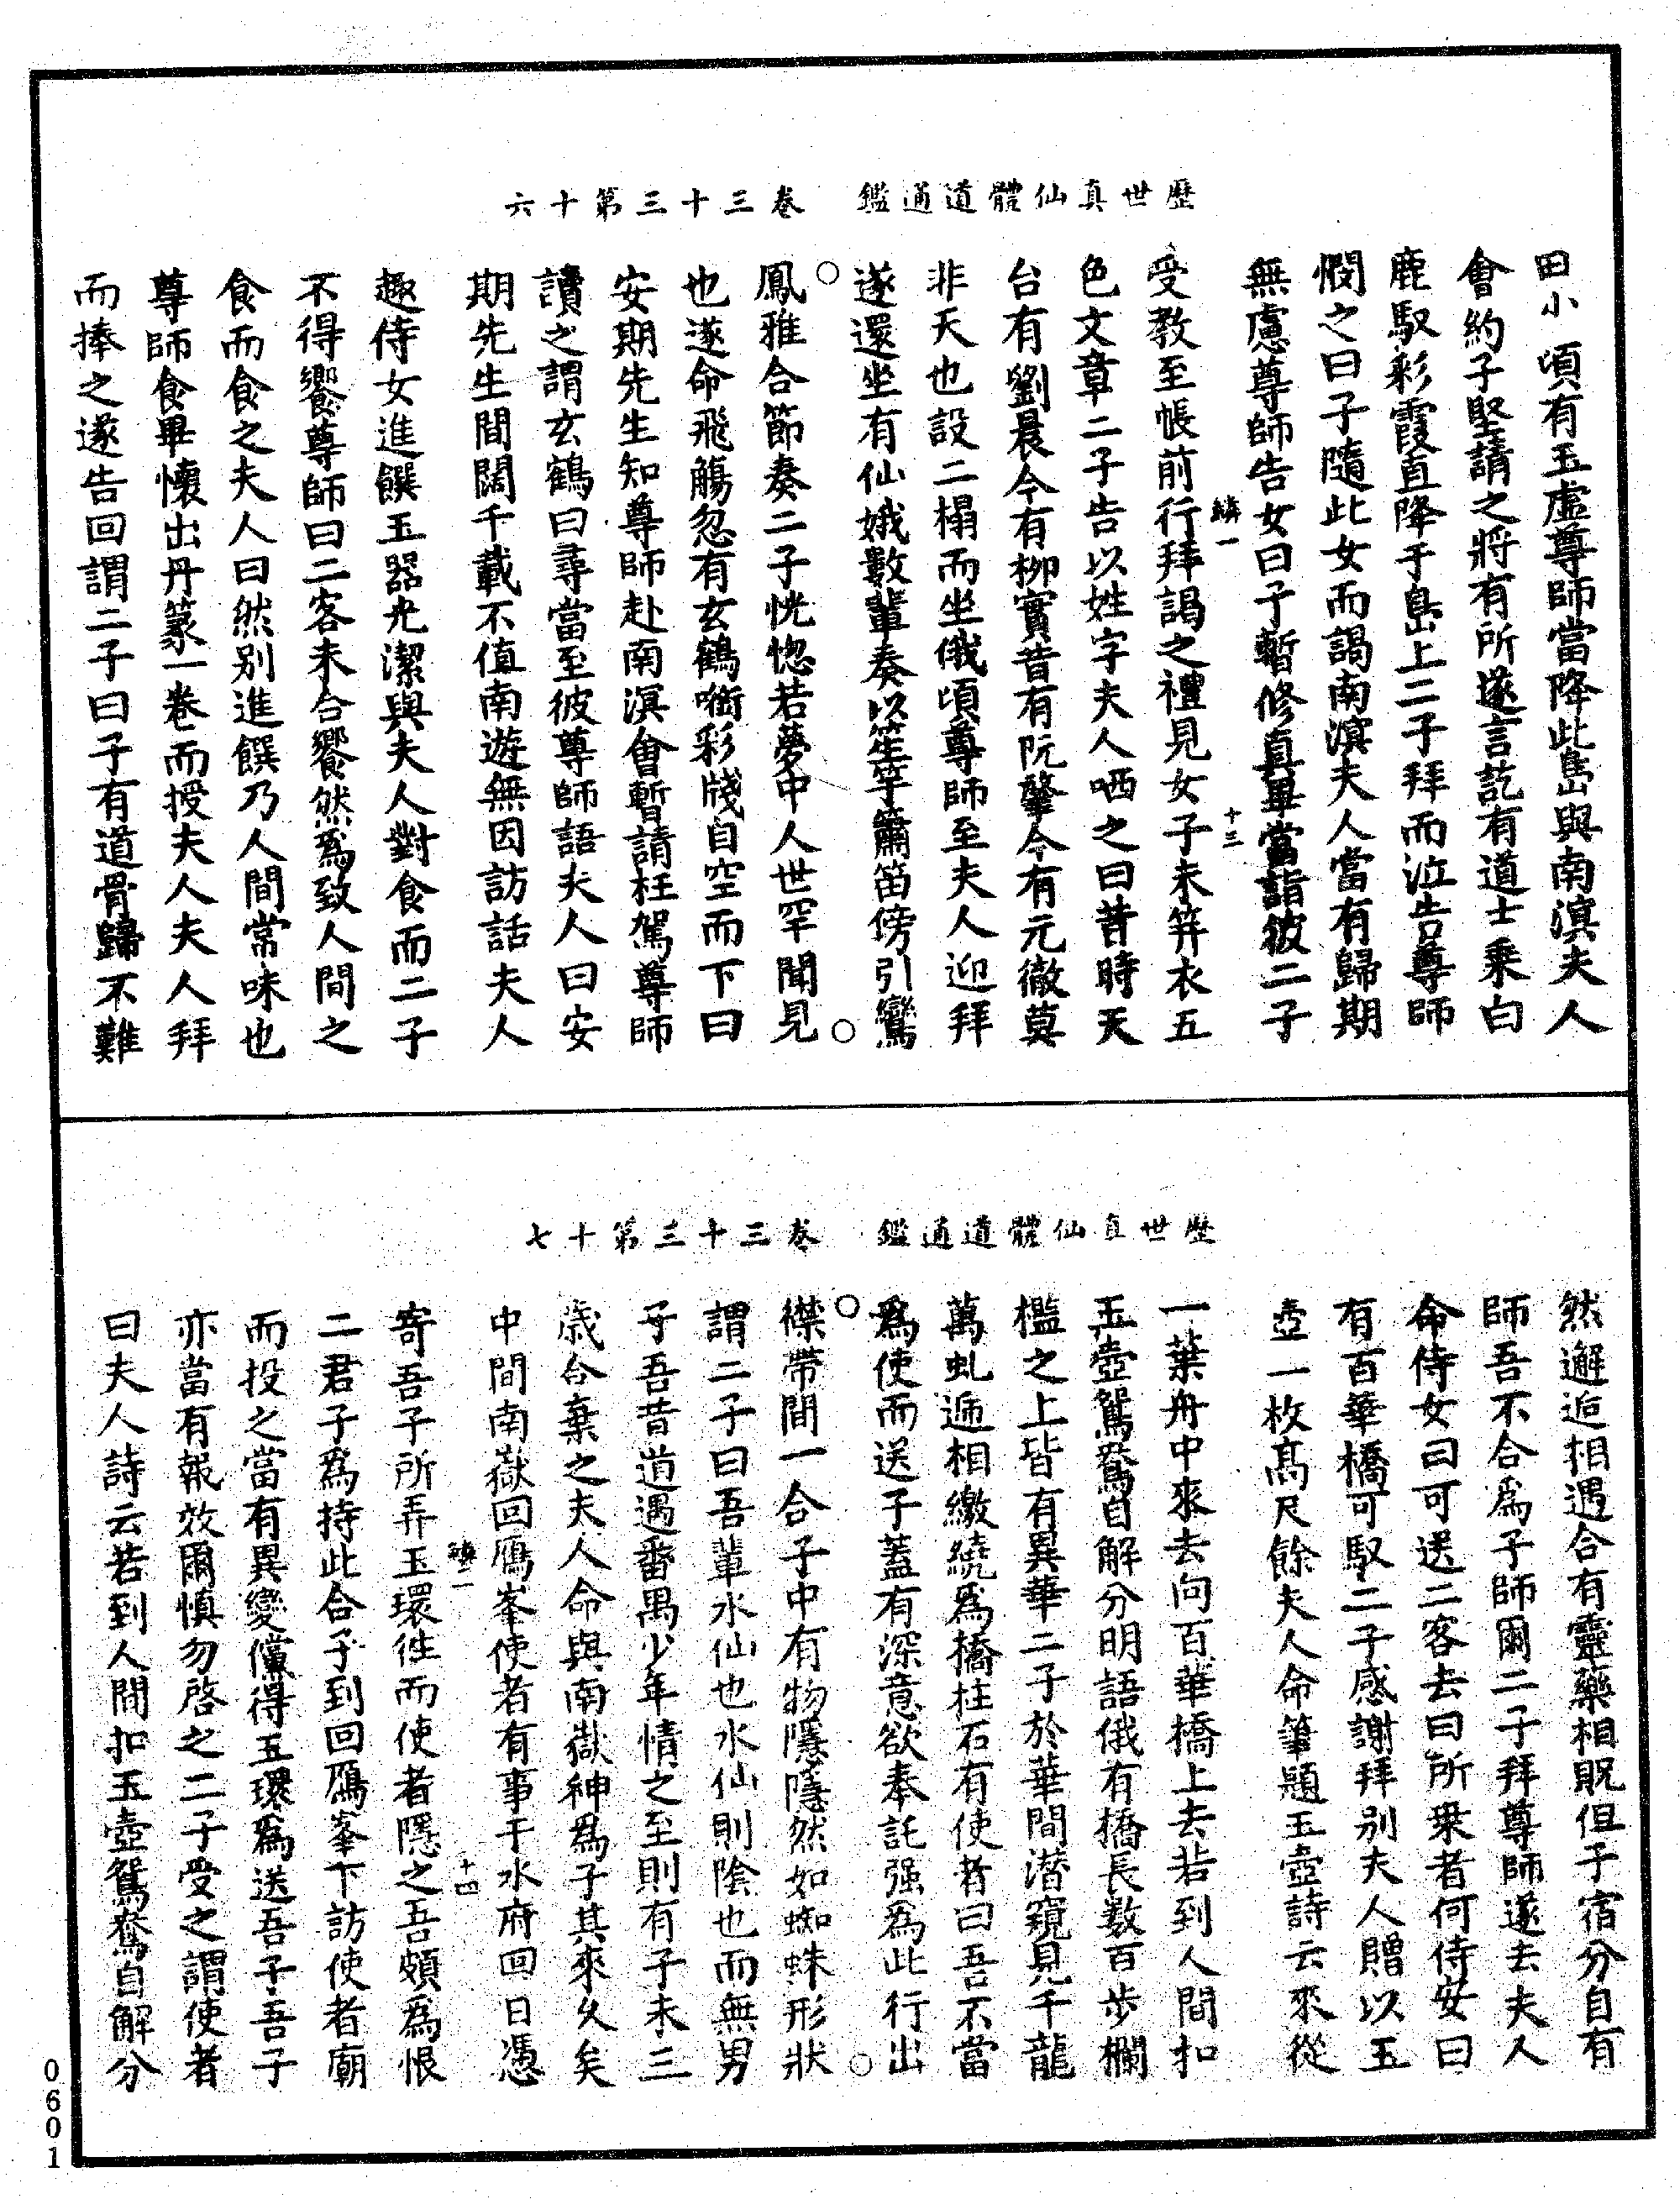 歷世真仙體道通鑑　卷三十三第十六
田小頃有玉虛尊師當降此島與南溟夫人
會約子堅請之將有所遂言訖有道士乗白
鹿馭彩霞直降于島上二子拜而泣告尊師
憫之曰子隨此女而謁南溟夫人當有歸期
無慮尊師告女曰子暫修真畢當詣彼二子
鱗一　十三
受教至帳前行拜謁之禮見女子未笄衣五
色文章二子告以姓字夫人哂之曰昔時天
台有劉晨今有柳實昔有阮肇今有元徹莫
非天也設二榻而坐俄頃尊師至夫人迎拜
遂還坐有仙娥數輩奏以笙竽簫笛傍引鸞
鳳雅合節奏二子恍惚若夢中人世罕聞見
也遂命飛觴忽有玄鶴㗸彩牋自空而下曰
安期先生知尊師赴南溟會暫請枉駕尊師
讀之謂玄鶴曰尋當至彼尊師語夫人曰安
期先生間闊千載不值南遊無因訪話夫人
趣侍女進饌玉器光潔與夫人對食而二子
不得饗尊師曰二客未合饗然為致人間之
食而食之夫人曰然别進饌乃人間常味也
尊師食畢懷出丹篆一卷而授夫人夫人拜
而捧之遂告回謂二子曰子有道骨歸不難
歷世真仙體道通鑑　卷三十三第十七
然邂逅相遇合有靈藥相貺但子宿分自有
師吾不合為子師爾二子拜尊師遂去夫人
命侍女曰可送二客去曰所乗者何侍女曰
有百華橋可馭二子感謝拜别夫人贈以玉
壺一枚髙尺餘夫人命筆題玉壺詩云來從
一葉舟中來去向百華橋上去若到人間扣
玉壺鴛鴦自解分明語俄有橋長數百步欄
檻之上皆有異華二子於華間潜窺見千龍
萬虬逓相繳繞為橋柱石有使者曰吾不當
為使而送子蓋有深意欲奉託强為此行出
襟帶間一合子中有物隱隱然如蜘蛛形狀
謂二子曰吾輩水仙也水仙則陰也而無男
子吾昔道遇番禺少年情之至則有子未三
歲合棄之夫人命與南嶽神為子其來乆矣
中間南嶽回鴈峯使者有事于水府回日憑
寄吾子所弄玉環徃而使者隱之吾頗為恨
鱗一　十四
二君子為持此合子到回鴈峯下訪使者廟
而投之當有異變儻得玉環為送吾子吾子
亦當有報效爾慎勿啓之二子受之謂使者
曰夫人詩云若到人間扣玉壺鴛鴦自解分
0601